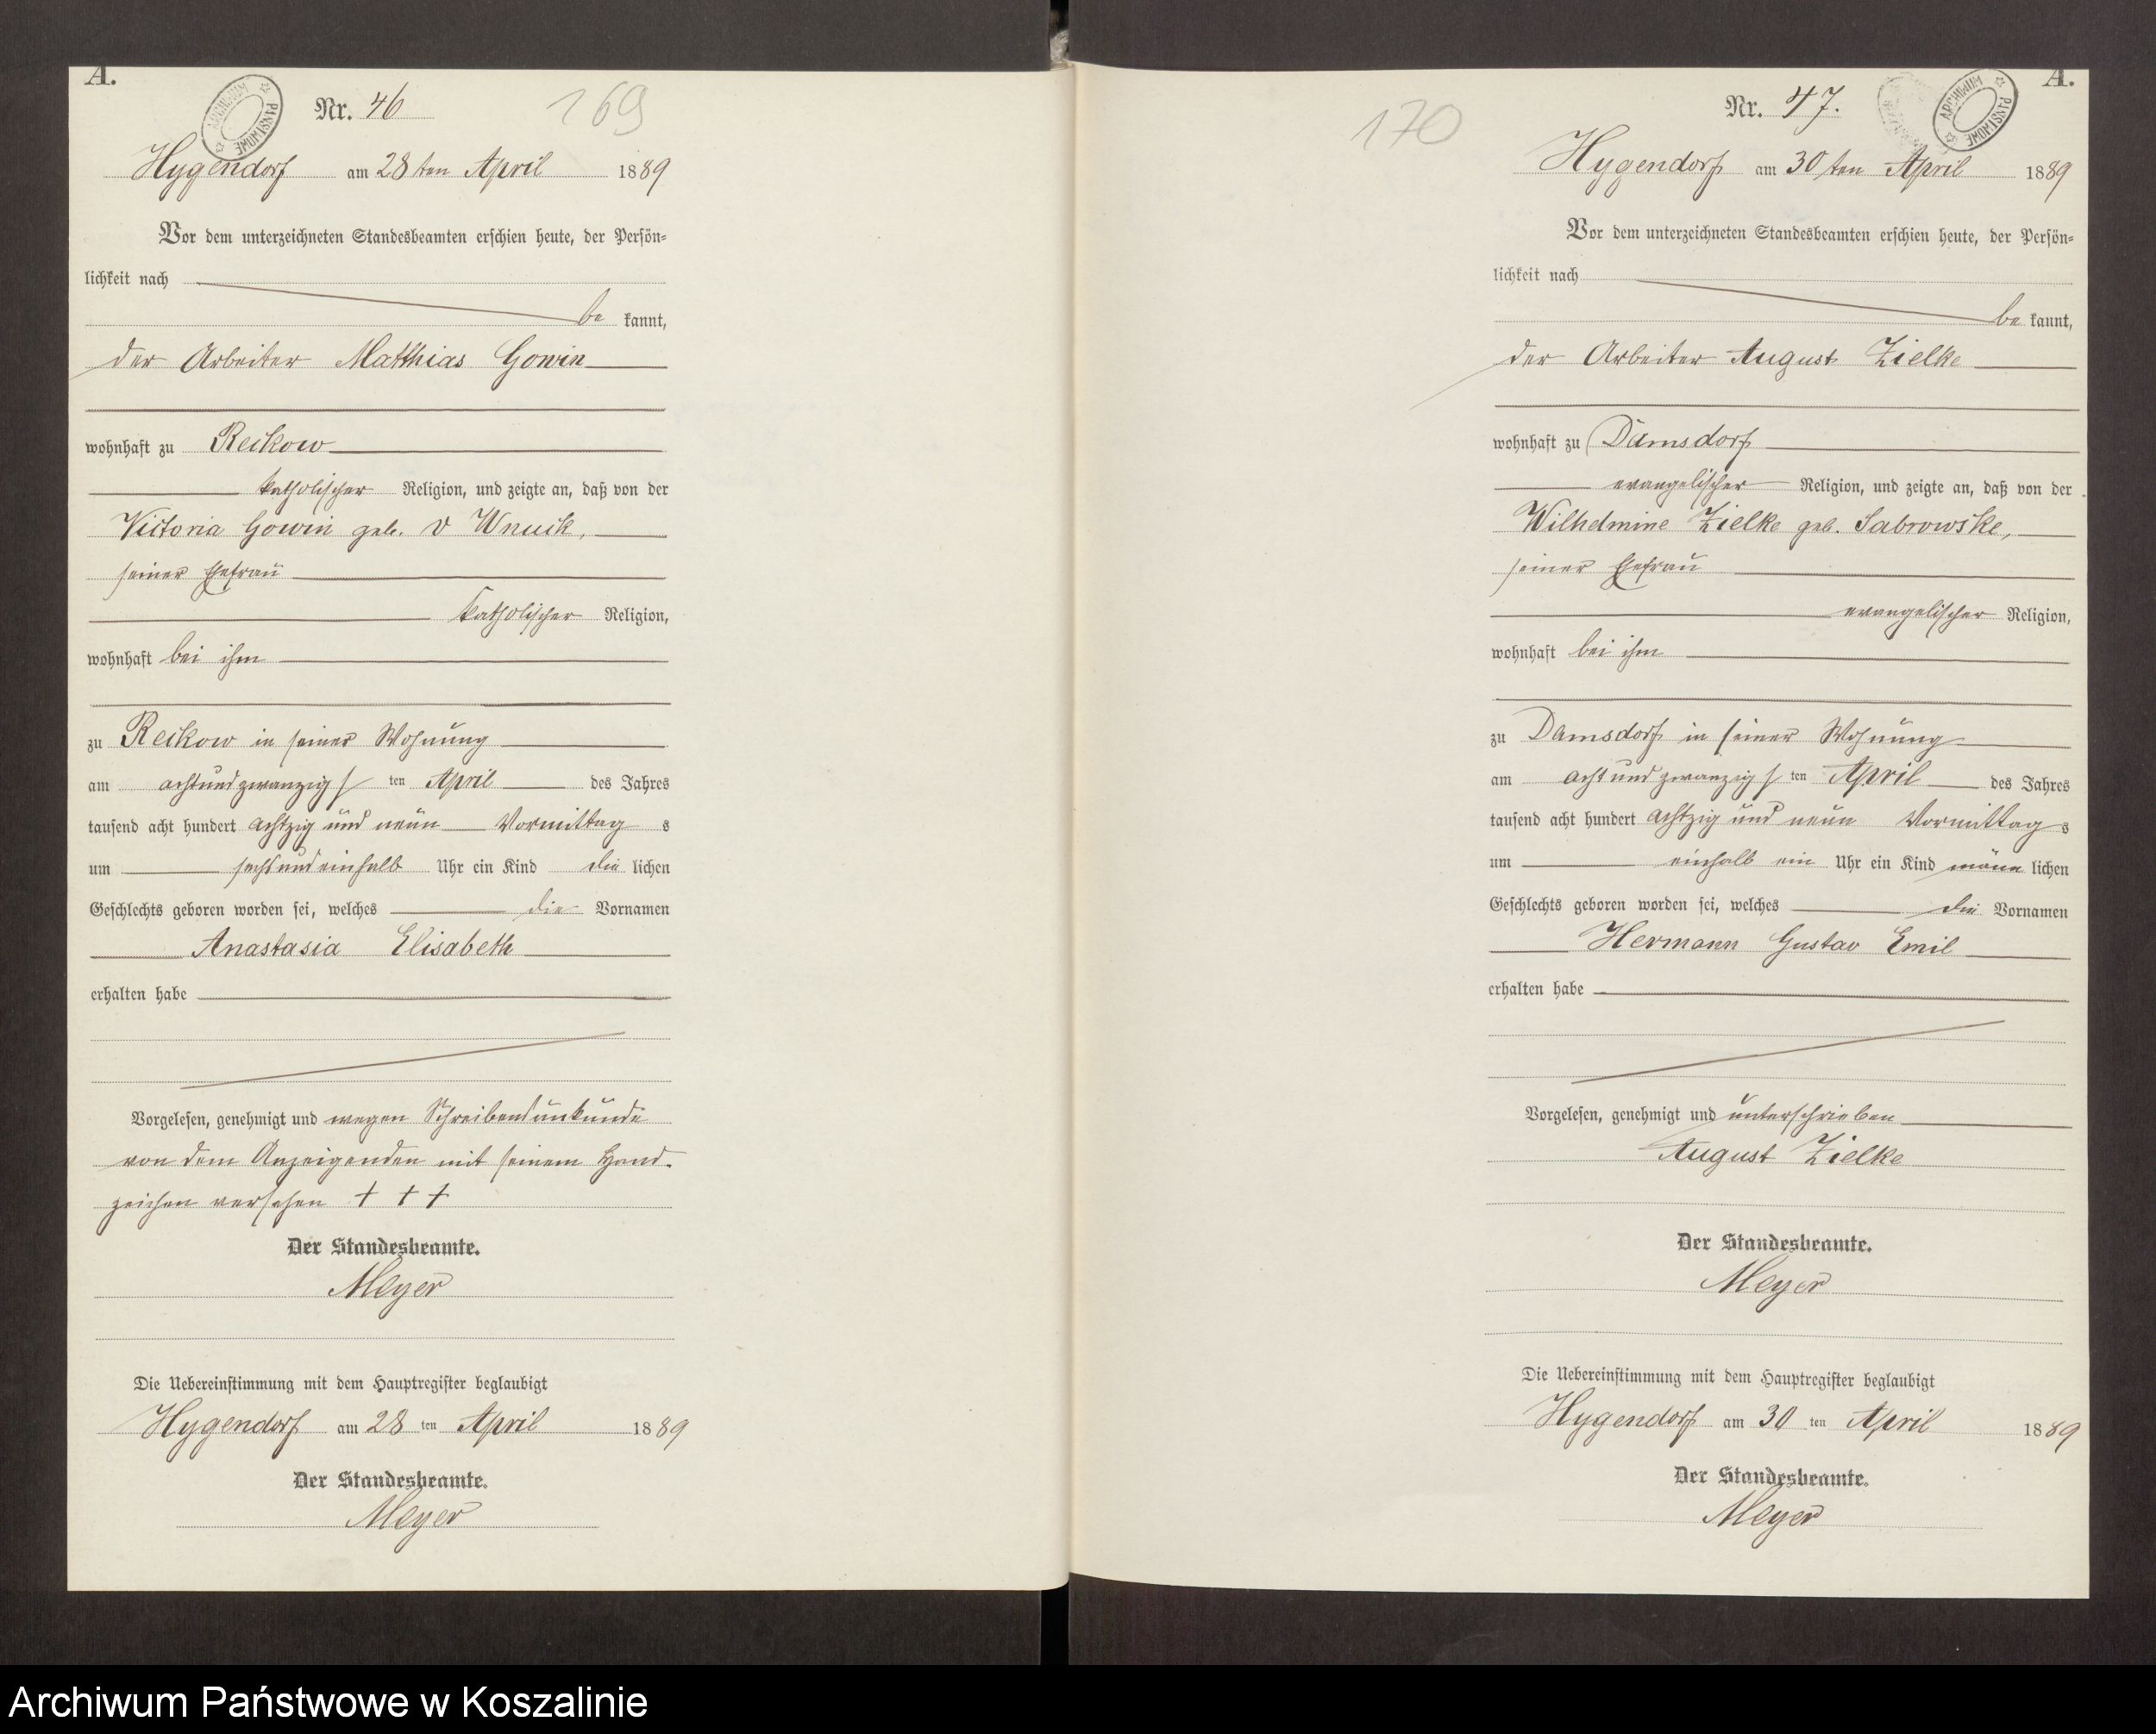 A.
ARCHIWUM PAŃSTWOWE
Nr. 46
169
Hygendorf am 28ten April 1889
Vor dem unterzeichneten Standesbeamten erschien heute, der Persön-
lichkeit nach
be kannt,
der Arbeiter Matthias Gowin
wohnhaft zu Reikow
katholischer Religion, und zeigte an, daß von der
Victoria Gowin geb. v Wnuck,
seiner Ehefrau
katholischer Religion,
wohnhaft bei ihm
zu Reikow in seiner Wohnung
am achtundzwanzigsten April des Jahres
tausend acht hundert achtzig und neun Vormittags
um sechsundeinhalb Uhr ein Kind die lichen
Geschlechts geboren worden sei, welches die Vornamen
Anastasia Elisabeth
erhalten habe
Vorgelesen, genehmigt und wegen Schreibensunkunde
von dem Anzeigenden mit seinem Hand-
zeichen versehen + + +
Der Standesbeamte.
Meyer
Die Uebereinstimmung mit dem Hauptregister beglaubigt
Hygendorf am 28 ten April 1889
Der Standesbeamte.
Meyer
170
Nr. 47.
ARCHIWUM PAŃSTWOWE
A.
Hygendorf am 30ten April 1889
Vor dem unterzeichneten Standesbeamten erschien heute, der Persön-
lichkeit nach
be kannt,
der Arbeiter August Zielke
wohnhaft zu Damsdorf
evangelischer Religion, und zeigte an, daß von der
Wilhelmine Zielke geb. Sabrowske,
seiner Ehefrau
evangelischer Religion,
wohnhaft bei ihm
zu Damsdorf in seiner Wohnung
am achtundzwanzigsten April des Jahres
tausend acht hundert achtzig und neun Vormittags
um einhalb ein Uhr ein Kind männlichen
Geschlechts geboren worden sei, welches die Vornamen
Hermann Gustav Emil
erhalten habe
Vorgelesen, genehmigt und unterschrieben
August Zielke
Der Standesbeamte.
Meyer
Die Uebereinstimmung mit dem Hauptregister beglaubigt
Hygendorf am 30 ten April 1889
Der Standesbeamte.
Meyer
Archiwum Państwowe w Koszalinie